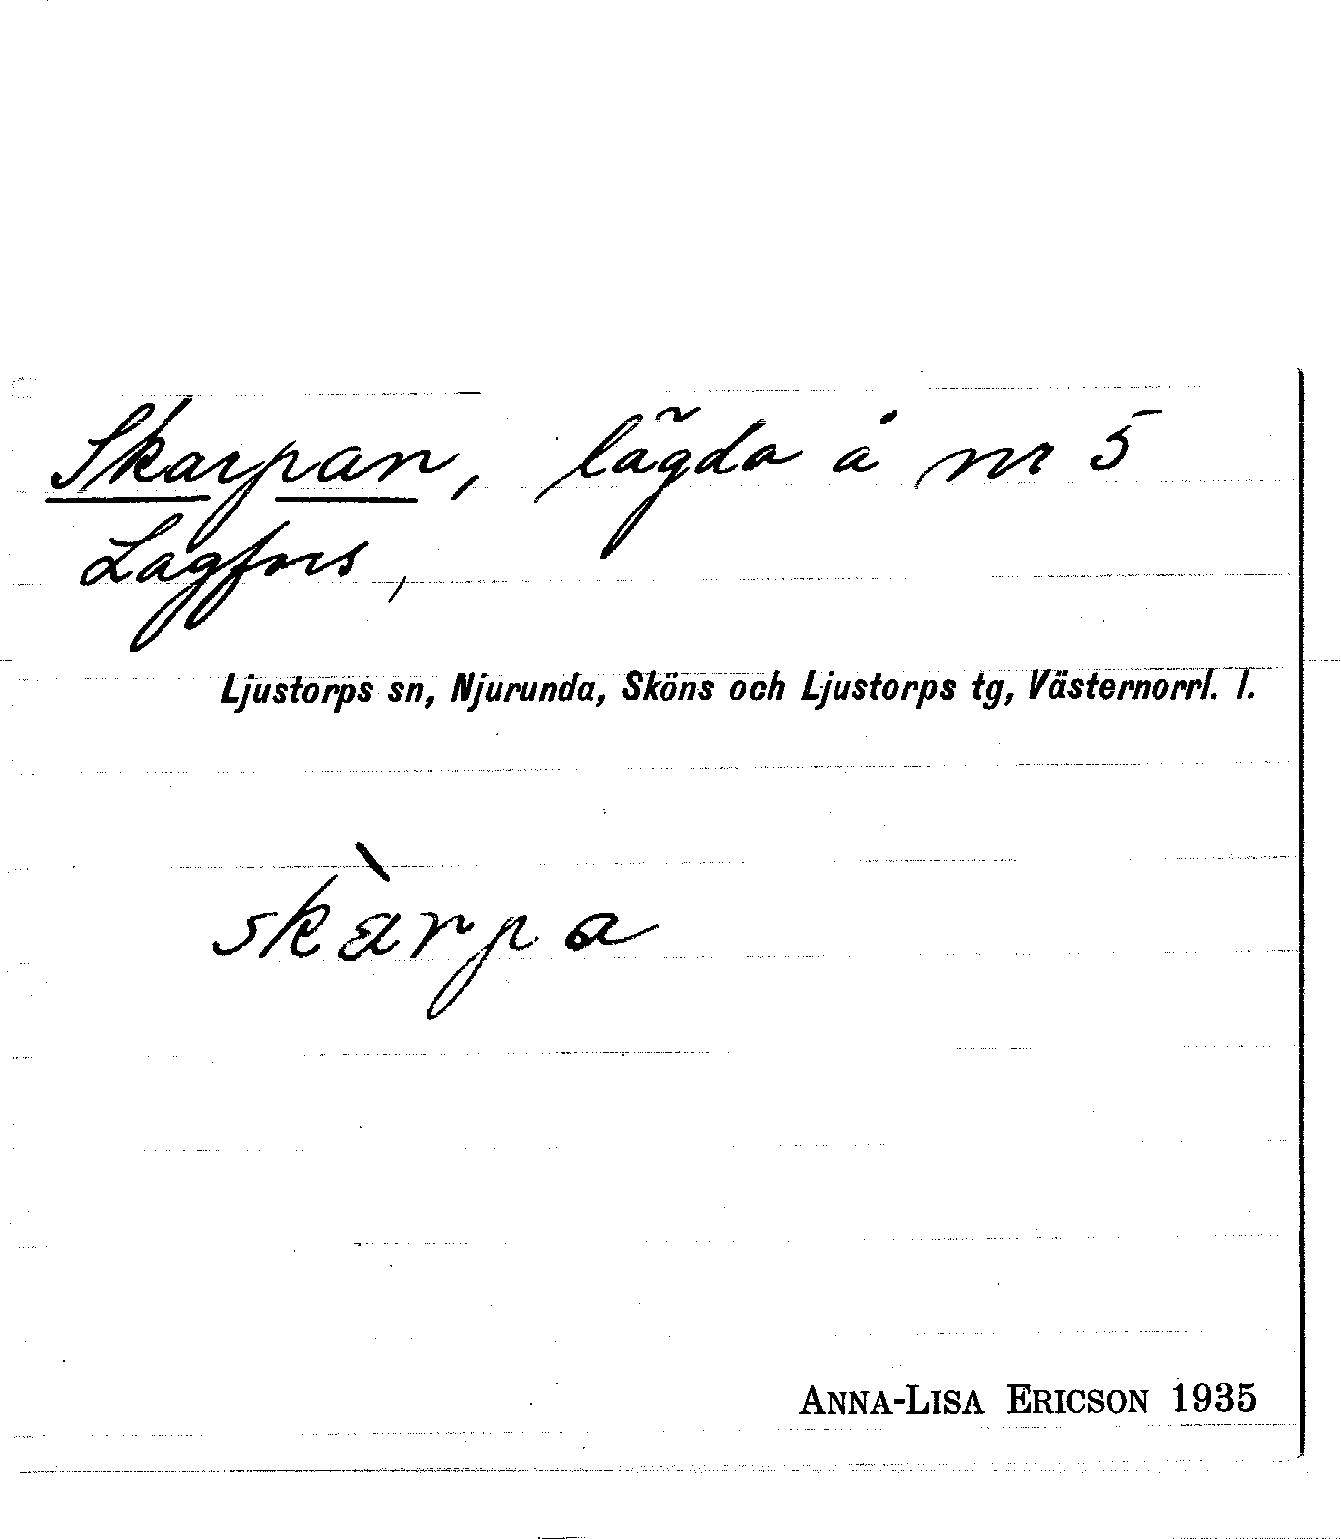 Skarpan, lägda å nr 5
Lagfors,
Ljustorps sn, Njurunda, Sköns och Ljustorps tg, Västernorrl. l.
skàrpa
ANNA-LISA ERICSON 1935